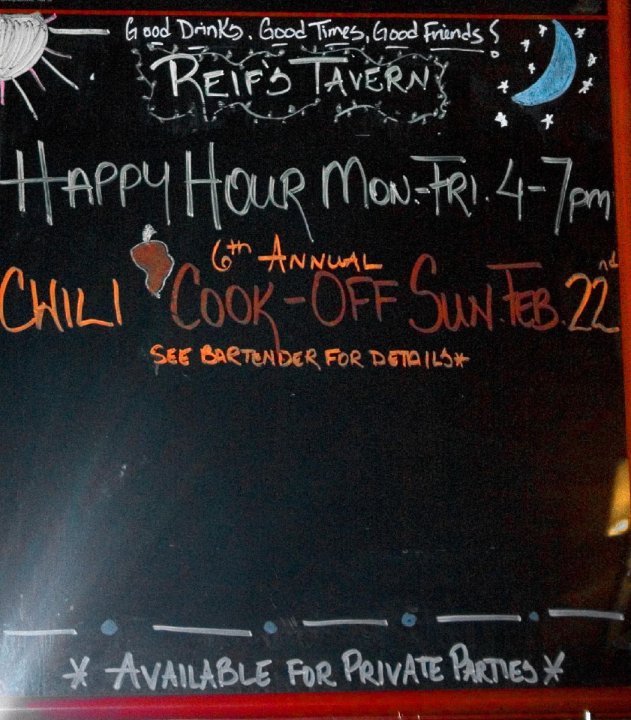 Good Drinks. Good Times, Good Friends!
REIF'S TAVERN
HAPPY HOUR MON.-FRI. 4-7pm
6th ANNUAL
CHILI COOK-OFF SUN. FEB. 22nd
SEE BARTENDER FOR DETAILS*
* AVAILABLE FOR PRIVATE PARTIES *